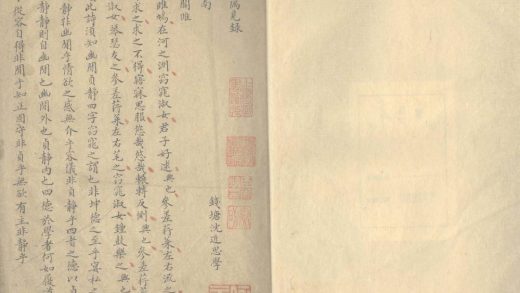 見錄
錢塘沈近思學
南
關雎
雎鳩在河之洲窈窕淑女君子好逑興也參差荇菜左右流之
求之求之不得寤寐思服悠哉悠哉輾轉反側興也參差荇
淑女琴瑟友之參差荇菜左右芼之窈窕淑女鍾鼓樂之興也
此詩須知幽閒貞靜四字窈窕之謂也非坤德之至乎宴私之
靜非幽閒乎情欲之感無介乎容儀非貞靜乎四者之德以貞
靜靜則自幽閒也幽閒外也貞靜內也四德於學者何如履道
從容自得非閒乎如正固守非貞乎無欲有主非靜乎